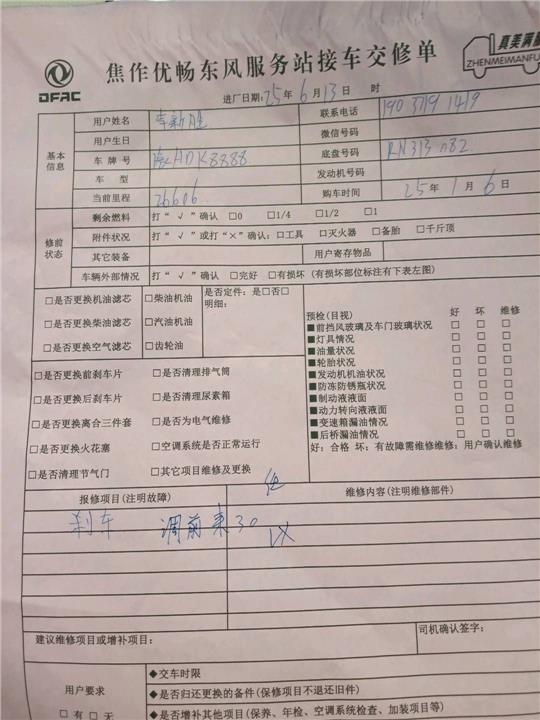 焦作优畅东风服务站接车交修单
DFAC
真美满
ZHENMEIMANFU
进厂日期：25年6月13日 时
基本信息
用户姓名 李新胜 联系电话
用户生日 微信号码
车牌号 底盘号码 RN313082
车 型 发动机号码
当前里程 26606 购车时间 25年1月6日
修前状态
剩余燃料 打“√”确认 □0 □1/4 □1/2 □1
附件状况 打“√”或打“×”确认：□工具 □灭火器 □备胎 □千斤顶
其它装备 用户寄存物品
车辆外部情况 打“√”确认 □完好 □有损坏（有损坏部位标注有下表左图）
□是否更换机油滤芯 □柴油机油 是否定件：是□否□
明细：
□是否更换柴油滤芯 □汽油机油
□是否更换空气滤芯 □齿轮油
□是否更换前刹车片 □是否清理排气筒
□是否更换后刹车片 □是否清理尿素箱
□是否更换离合三件套 □是否为电气维修
□是否更换火花塞 □空调系统是否正常运行
□是否清理节气门 □其它项目维修及更换
预检(目视) 好 坏 维修
■前挡风玻璃及车门玻璃状况 □ □ □
■灯具情况 □ □ □
■油量状况 □ □ □
■轮胎状况 □ □ □
■发动机机油状况 □ □ □
■防冻防锈瓶状况 □ □ □
■制动液液面 □ □ □
■动力转向液液面 □ □ □
■变速箱漏油情况 □ □ □
■后桥漏油情况 □ □ □
好：合格 坏：有故障需维修维修：用户确认维修
报修项目(注明故障) 维修内容(注明维修部件)
刹车 调前束30
建议维修项目或增补项目： 司机确认签字：
用户要求
□有 □无
◆交车时限
◆是否归还更换的备件(保修项目不退还旧件)
◆是否增补其他项目(保养、年检、空调系统检查、加装项目等)